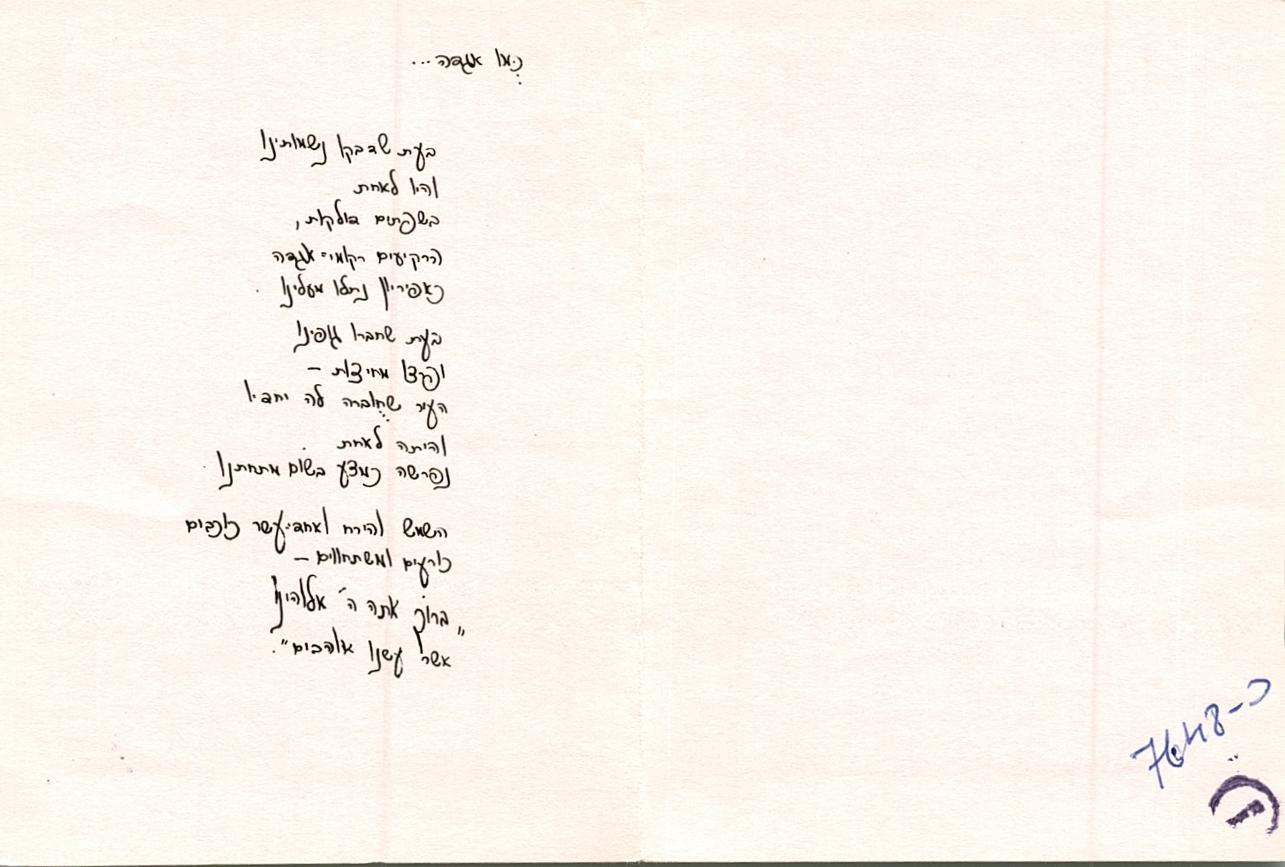 כְּמוֹ אגדה...
בעת שדבקו נשמותינו
והיו לאחת
בשפתים דולקות,
הרקיעים רקומי-אגדה
כאפיריון נתלו מעלינו.
בעת שחברו גופינו
ופרצו מחיצות –
העיר שחֻוברה לה יחדיו
והיתה לאחת
נפרשה כמצע בשום מתחתנו.
השמש והירח ואחד-עשר כוכבים
כורעים ומשתחווים –
"ברוך אתה ה' אלוהינו
אשר עשנו אוהבים".